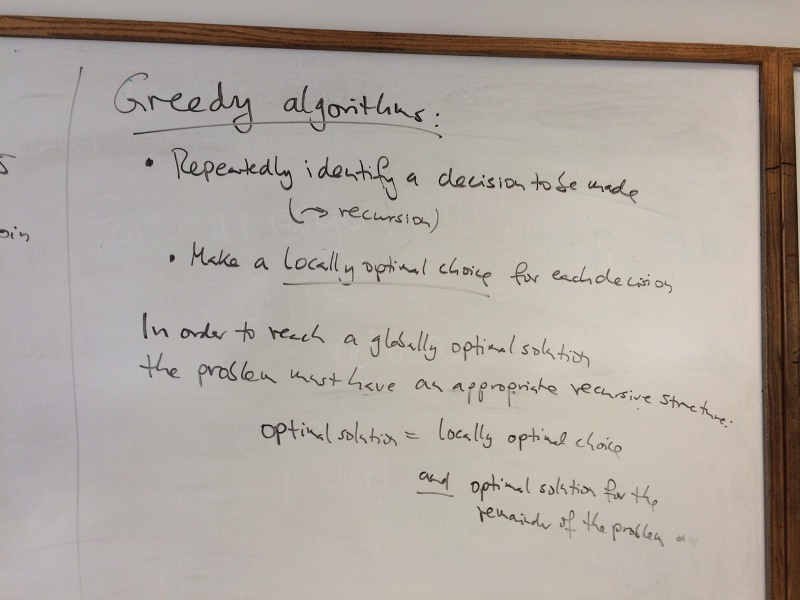 Greedy algorithms:
• Repeatedly identify a decision to be made
(→ recursion)
• Make a locally optimal choice for each decision
In order to reach a globally optimal solution
the problem must have an appropriate recursive structure:
optimal solution = locally optimal choice
and optimal solution for the
remainder of the problem